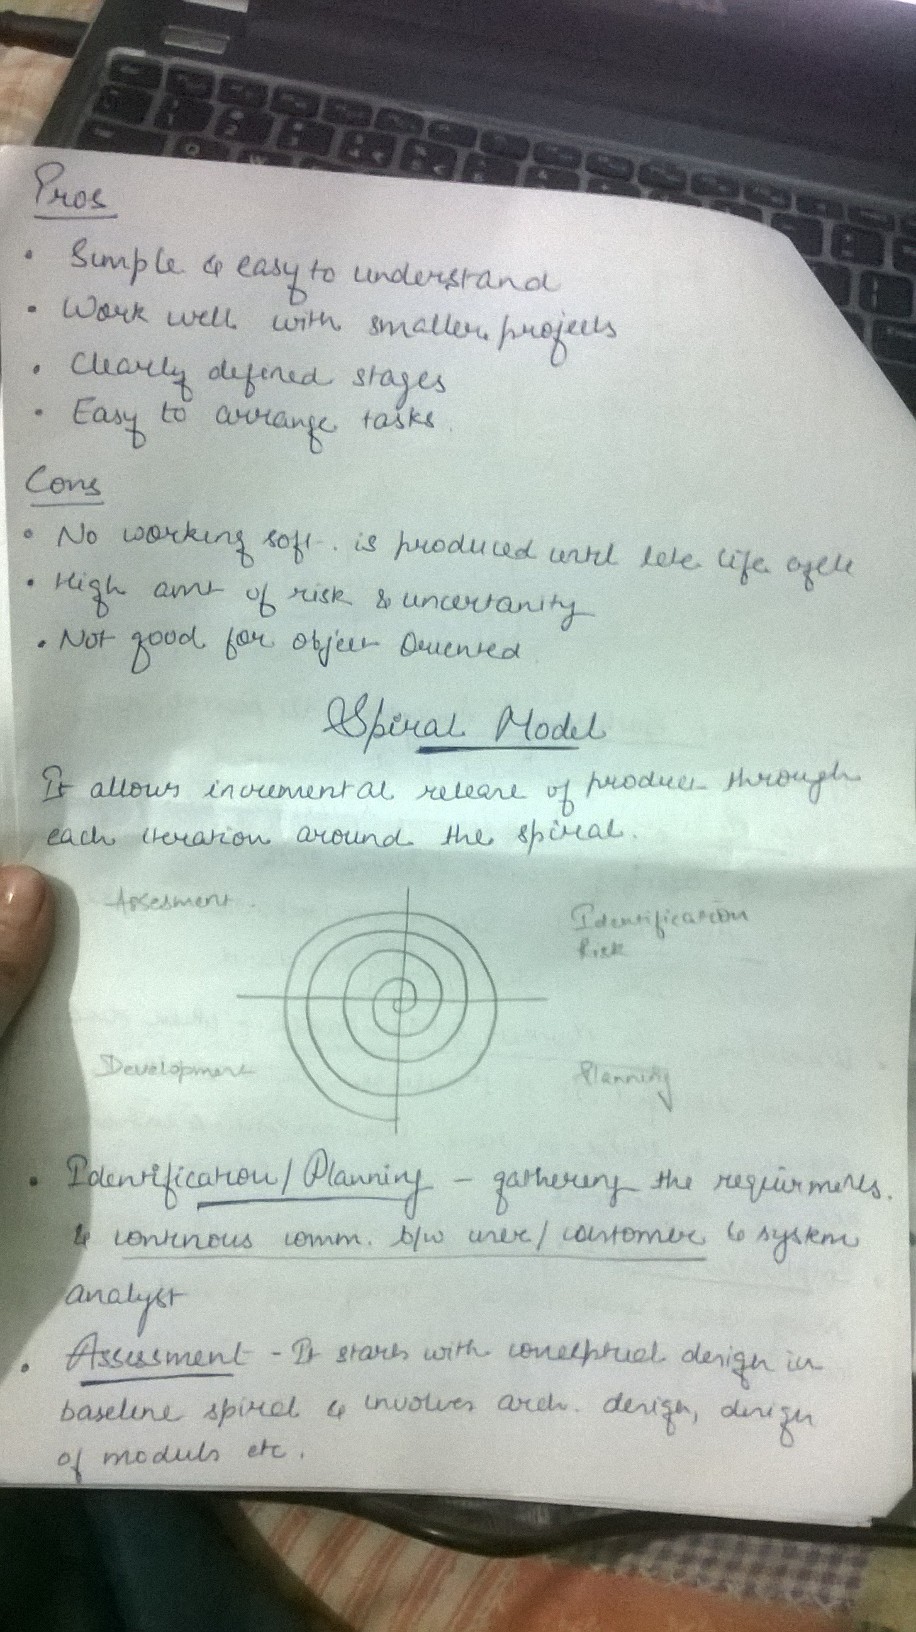 Pros
• Simple & easy to understand
• Work well with smaller projects
• Clearly defined stages
• Easy to arrange tasks.
Cons
• No working soft. is produced until late life cycle
• High amt of risk & uncertanity
• Not good for object Oriented
Spiral Model
It allows incremental release of product through
each iteration around the spiral.
Assesment.
Identification
Risk
Development
Planning
• Identification/Planning - gathering the requirments.
& continous comm. b/w user/customer & system
analyst
• Assessment - It starts with conceptual design in
baseline spiral & involves arch. design, design
of moduls etc.